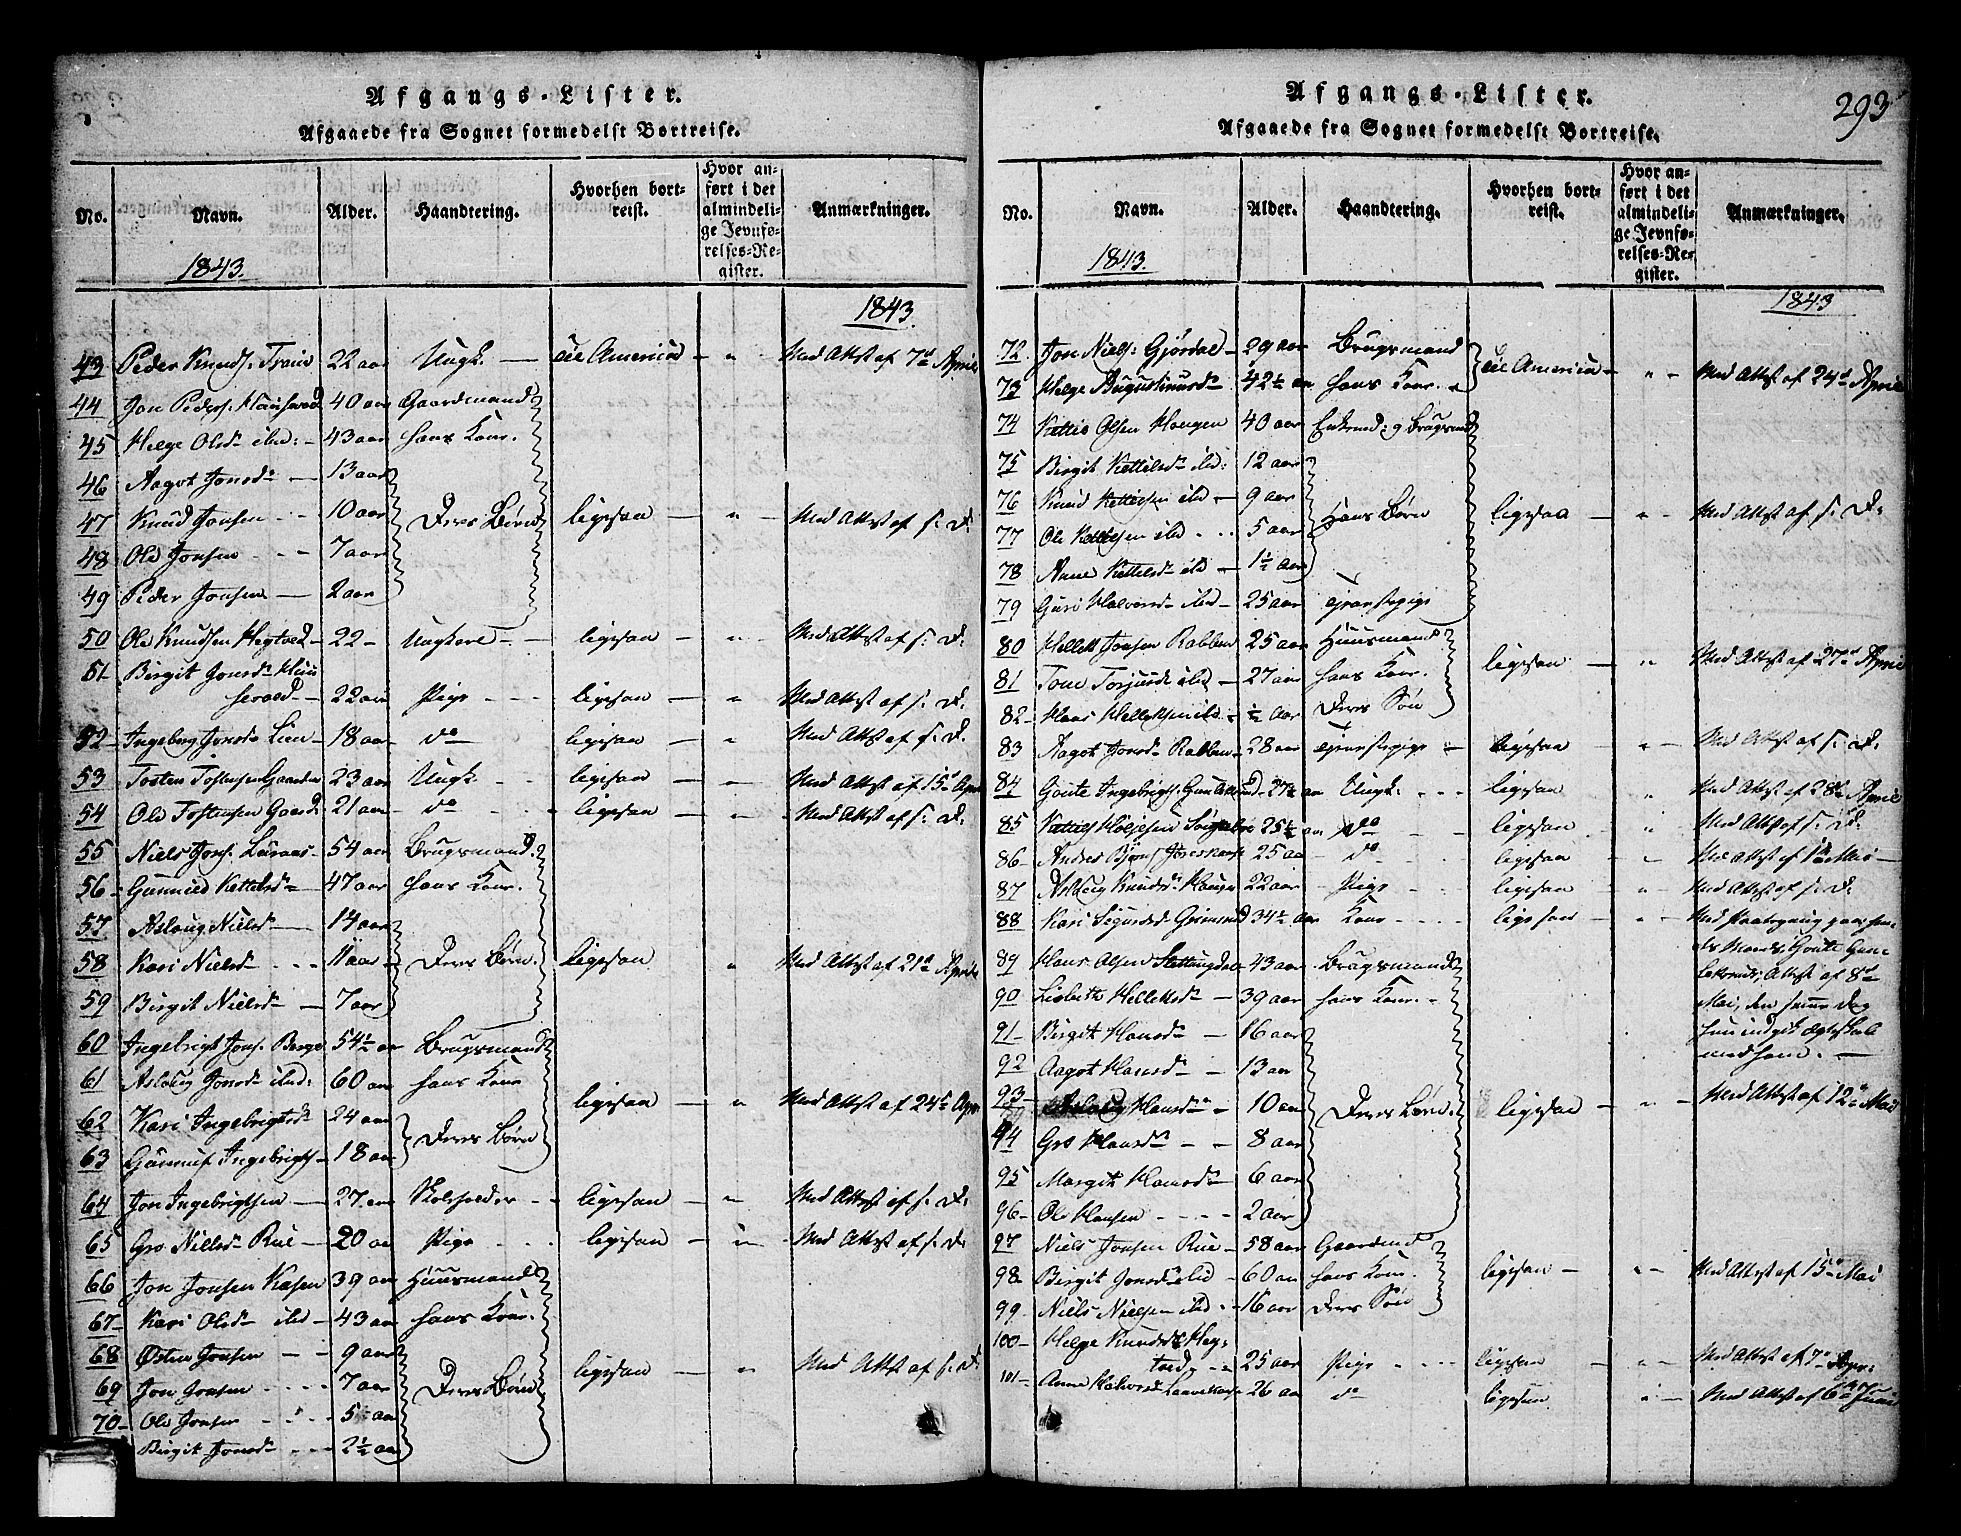 Afgangs-Lister.
Afgaaede fra Sognet formedelst Bortreise.
No. Navn. Alder. Haandtering. Hvorhen bortreist. Hvor anført i det almindelige Jevnførelses-Register. Anmærkninger.
1843.
1843.
43 Peder Knuds. 22 aar Ungk. til America - " - Med Attest af 7de April
44 Jon Peders. 40 aar Gaardmand
45 Helge Olsdr ibid: 43 aar hans Kone.
46 Aagot Jonsdr 13 aar
47 Knud Jonsen 10 aar Deres Børn ligesaa - " - Med Attest af s. D.
48 Ole Jonsen 7 aar
49 Peder Jonsen 2 aar
50 Ole Knudsen Hegtved 22 - Ungkarl - ligesaa - " - Med Attest af s. D.
51 Birgit Jonsdr
22 aar Pige - ligesaa - " Med Attest af s. D.
52 Ingeborg Jonsdr Lien 18 aar do ligesaa - " Med Attest af s. D.
53 Tosten Tostensen Gaarder 23 aar Ungk. ligesaa - " - Med Attest af 15de Apr
54 Ole Tostensen Gaard. 21 aar do ligesaa - " - Med Attest af s. D.
55 Niels Jons. Luraas 54 aar Brugsmand
56 Gunnild Kettelsdr 47 aar hans Kone.
57 Aslaug Nielsdr 14 aar
58 Kari Nielsdr 11 aar Deres Børn. ligesaa " Med Attest af 21de April
59 Birgit Nielsdr 7 aar
60 Ingebrigt Jons. Berge 54½ aar Brugsmand
61 Aslaug Jonsdr ibid: 60 aar hans Kone
62 Kari Ingebrigtsdr 24 aar ligesaa - " - Med Attest af 24de Apr
63 Gunnuf Ingebrigts. 18 aar Deres Børn
64 Jon Ingebrigtsen 27 aar Skoleholder ligesaa - " - Med Attest af s. D.
65 Gro Nielsdr Rue 20 aar Pige ligesaa - " - Med Attest af s. D.
66 Jon Jonsen Kasen 39 aar Huusmand
67 Kari Olsdr ibid 43 aar hans Kone.
68 Østen Jonsen 9 aar
69 Jon Jonsen 7 aar Deres Børn ligesaa - " - Med Attest af s. D.
70 Ole Jonsen 5 aar
Birgit Jonsdr 2½ aar
293
Afgangs-Lister.
Afgaaede fra Sognet formedelst Bortreise.
No. Navn. Alder. Haandtering. Hvorhen bortreist. Hvor anført i det almindelige Jevnførelses-Register. Anmærkninger.
1843.
1843
72 Jon Niels: Gjørdal 29 aar Brugsmand
73 Helge Augustinusdr 42½ aar hans Kone. til America - " - Med Attest af 24de April
74 Kettil Olsen Haugen 40 aar Enkemd: og Brugsmd
75 Birgit Kettilsdr ibid: 12 aar
76 Knud Kettilsen ibid 9 aar Hans Børn ligesaa - " - Med Attest af s. D.
77 Ole Kettilsen ibid 5 aar
78 Anne Kettilsdr ibid 1½ aar
79 Guri Halvorsdr ibid 25 aar Tjenestepige
80 Hellek Jonsen Rabben 25 aar Huusmand
81 Tone Torjusdr ibid 27 aar hans Kone. ligesaa - " - Med Attest af 27de April
82 Hans Helleksen ibd. ½ aar Deres Søn
83 Aagot Jonsdr Rabben 28 aar Tjenestepige ligesaa - " - Med Attest af s. D.
84 Goute Ingebrigts. 27½ aar Ungk. ligesaa " Med Attest af 28de April
85 25½ aar do ligesaa " Med Attest af s. D.
86 Andres Bjørns. 25 aar do ligesaa " Med Attest af 1ste Mai
87 Aslaug Knudsdr Haugen 22 aar Pige ligesaa " Med Attest af s. D.
88 Kari Sigursdr 34½ aar Kone ligesaa - " - Med
Mands, Goute
Attest af 8de
Mai, den samme Dag
hun indgik Ægteskab
med ham.
89 Hans Olsen 43 aar Brugsmand
90 Lisbeth Helleksdr 39 aar hans Kone
91 Birgit Hansdr 16 aar
92 Aagot Hansdr 13 aar
93 Aslaug Hansdr 10 aar Deres Børn. ligesaa - " - Med Attest af 12te Mai
94 Gro Hansdr 8 aar
95 Margit Hansdr 6 aar
96 Ole Hansen 2 aar
97 Niels Jonsen Rue 58 aar Gaardmd
98 Birgit Jonsdr ibid 60 aar hans Kone. ligesaa - " - Med Attest af 15de Mai
99 Niels Nielsen ibd. 16 aar Deres Søn
100 Helge Knudsdr Heg-
tved 25 aar Pige ligesaa - " - Med Attest af 7de Apr.
101 Anne Halvorsdr 26 aar do ligesaa " - Med Attest af 6te Juni